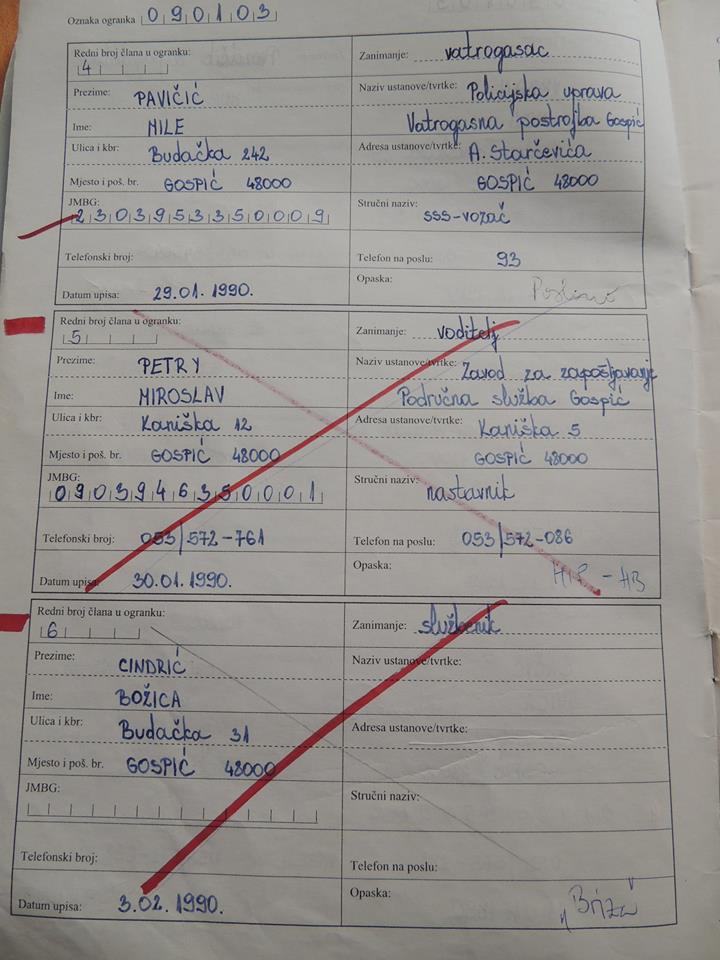 Oznaka ogranka 090103
Redni broj člana u ogranku:
4
Zanimanje: vatrogasac
Prezime: PAVIČIĆ
Naziv ustanove/tvrtke: Policijska uprava
Ime: MILE
Vatrogasna postrojba Gospić
Ulica i kbr: Budačka 242
Adresa ustanove/tvrtke: A. Starčevića
Mjesto i poš. br. GOSPIĆ 48000
GOSPIĆ 48000
JMBG:
2303953350009
Stručni naziv: SSS-vozač
Telefonski broj:
Telefon na poslu: 93
Datum upisa: 29.01.1990.
Opaska:
Redni broj člana u ogranku:
5
Zanimanje: voditelj
Prezime: PETRY
Naziv ustanove/tvrtke: Zavod za zapošljavanje
Ime: MIROSLAV
Područna služba Gospić
Ulica i kbr: Kaniška 12
Adresa ustanove/tvrtke: Kaniška 5
Mjesto i poš. br. GOSPIĆ 48000
GOSPIĆ 48000
JMBG:
0903946350001
Stručni naziv: nastavnik
Telefonski broj: 053/572-761
Telefon na poslu: 053/572-086
Datum upisa: 30.01.1990.
Opaska:
Redni broj člana u ogranku:
6
Zanimanje: službenik
Prezime: CINDRIĆ
Naziv ustanove/tvrtke:
Ime: BOŽICA
Ulica i kbr: Budačka 31
Adresa ustanove/tvrtke:
Mjesto i poš. br. GOSPIĆ 48000
JMBG:
Stručni naziv:
Telefonski broj:
Telefon na poslu:
Datum upisa: 3.02.1990.
Opaska: